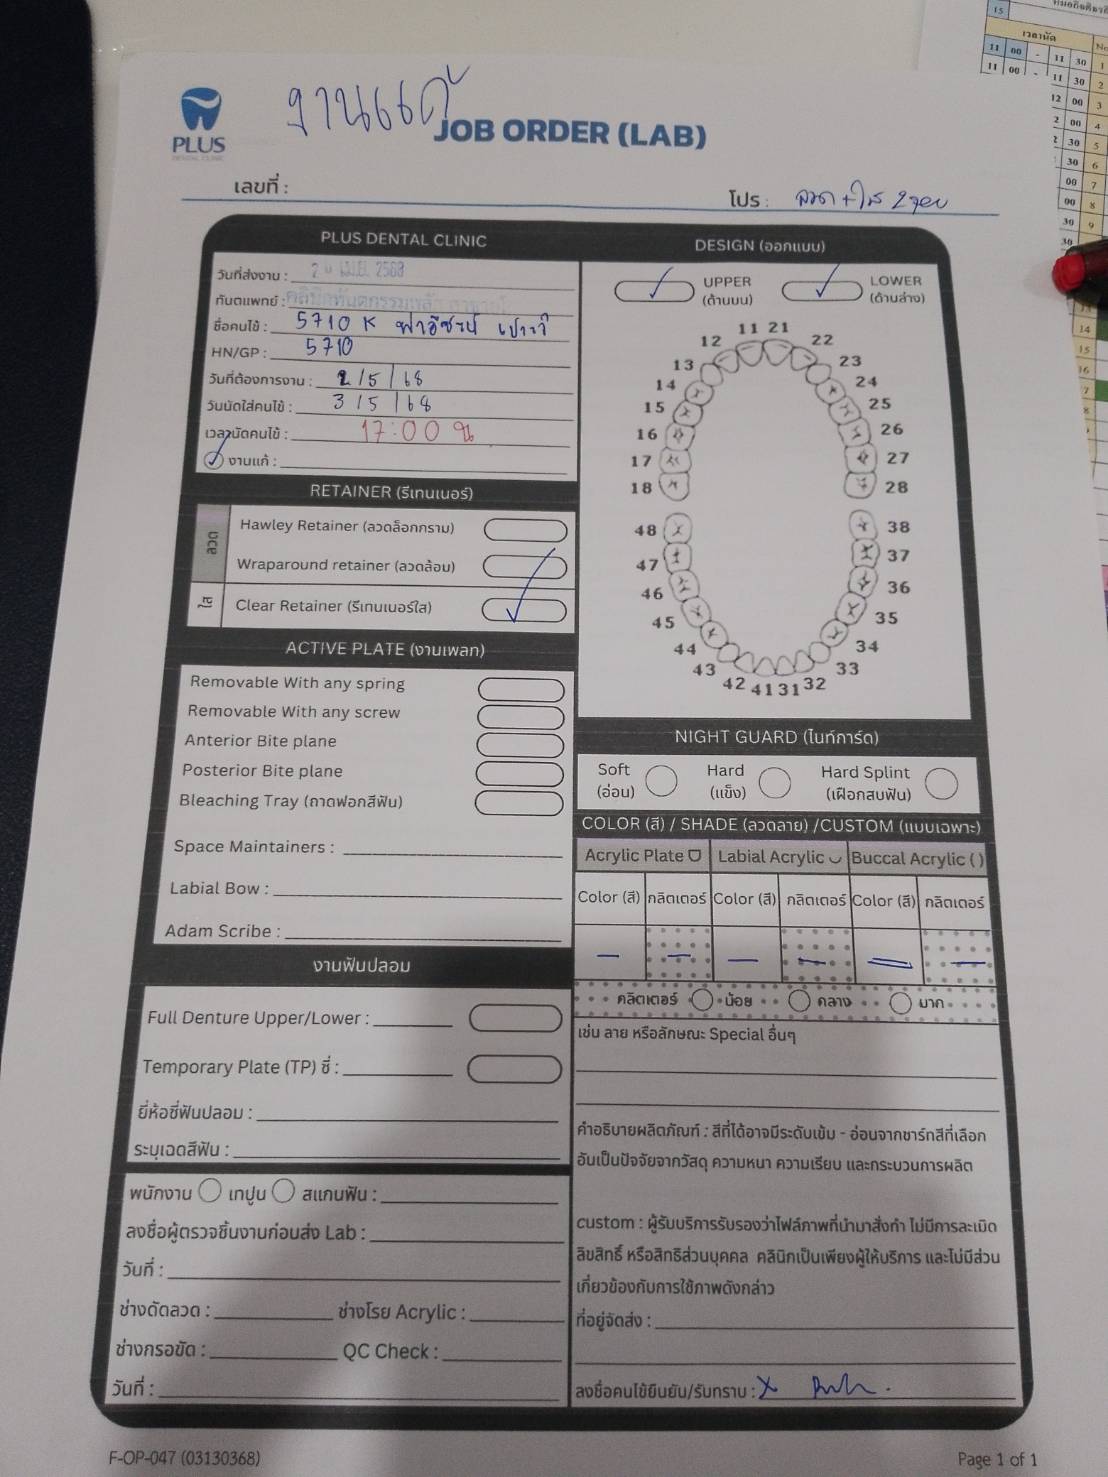 งานแก้
PLUS
DENTAL CLINIC
JOB ORDER (LAB)
เลขที่ :
โปร : ลวด + ใส 2 ชุด
PLUS DENTAL CLINIC
วันที่ส่งงาน : 2568
ทันตแพทย์ :
ชื่อคนไข้ : 5710 K
HN/GP : 5710
วันที่ต้องการงาน : 2/5/68
วันนัดใส่คนไข้ : 3/5/68
เวลานัดคนไข้ : 17:00 น
งานแก้ :
RETAINER (รีเทนเนอร์)
ลวด
Hawley Retainer (ลวดล็อกกราม)
Wraparound retainer (ลวดล้อม)
ใส
Clear Retainer (รีเทนเนอร์ใส)
ACTIVE PLATE (งานเพลท)
Removable With any spring
Removable With any screw
Anterior Bite plane
Posterior Bite plane
Bleaching Tray (ถาดฟอกสีฟัน)
Space Maintainers :
Labial Bow :
Adam Scribe :
งานฟันปลอม
Full Denture Upper/Lower :
Temporary Plate (TP) ซี่ :
ยี่ห้อซี่ฟันปลอม :
ระบุเฉดสีฟัน :
พนักงาน เทปูน สแกนฟัน :
ลงชื่อผู้ตรวจชิ้นงานก่อนส่ง Lab :
วันที่ :
ช่างดัดลวด : ช่างโรย Acrylic :
ช่างกรอขัด : QC Check :
วันที่ :
DESIGN (ออกแบบ)
UPPER
(ด้านบน)
LOWER
(ด้านล่าง)
11 21
12 22
13 23
14 24
15 25
16 26
17 27
18 28
48 38
47 37
46 36
45 35
44 34
43 33
42 41 31 32
NIGHT GUARD (ไนท์การ์ด)
Soft
(อ่อน)
Hard
(แข็ง)
Hard Splint
(เฝือกสบฟัน)
COLOR (สี) / SHADE (ลวดลาย) /CUSTOM (แบบเฉพาะ)
Acrylic Plate Labial Acrylic Buccal Acrylic ( )
Color (สี) กลิตเตอร์ Color (สี) กลิตเตอร์ Color (สี) กลิตเตอร์
— — — — — —
กลิตเตอร์ น้อย กลาง มาก
เช่น ลาย หรือลักษณะ Special อื่นๆ
คำอธิบายผลิตภัณฑ์ : สีที่ได้อาจมีระดับเข้ม - อ่อนจากชาร์ทสีที่เลือก
อันเป็นปัจจัยจากวัสดุ ความหนา ความเรียบ และกระบวนการผลิต
custom : ผู้รับบริการรับรองว่าไฟล์ภาพที่นำมาสั่งทำ ไม่มีการละเมิด
ลิขสิทธิ์ หรือสิทธิส่วนบุคคล คลินิกเป็นเพียงผู้ให้บริการ และไม่มีส่วน
เกี่ยวข้องกับการใช้ภาพดังกล่าว
ที่อยู่จัดส่ง :
ลงชื่อคนไข้ยืนยัน/รับทราบ : X
F-OP-047 (03130368)
Page 1 of 1